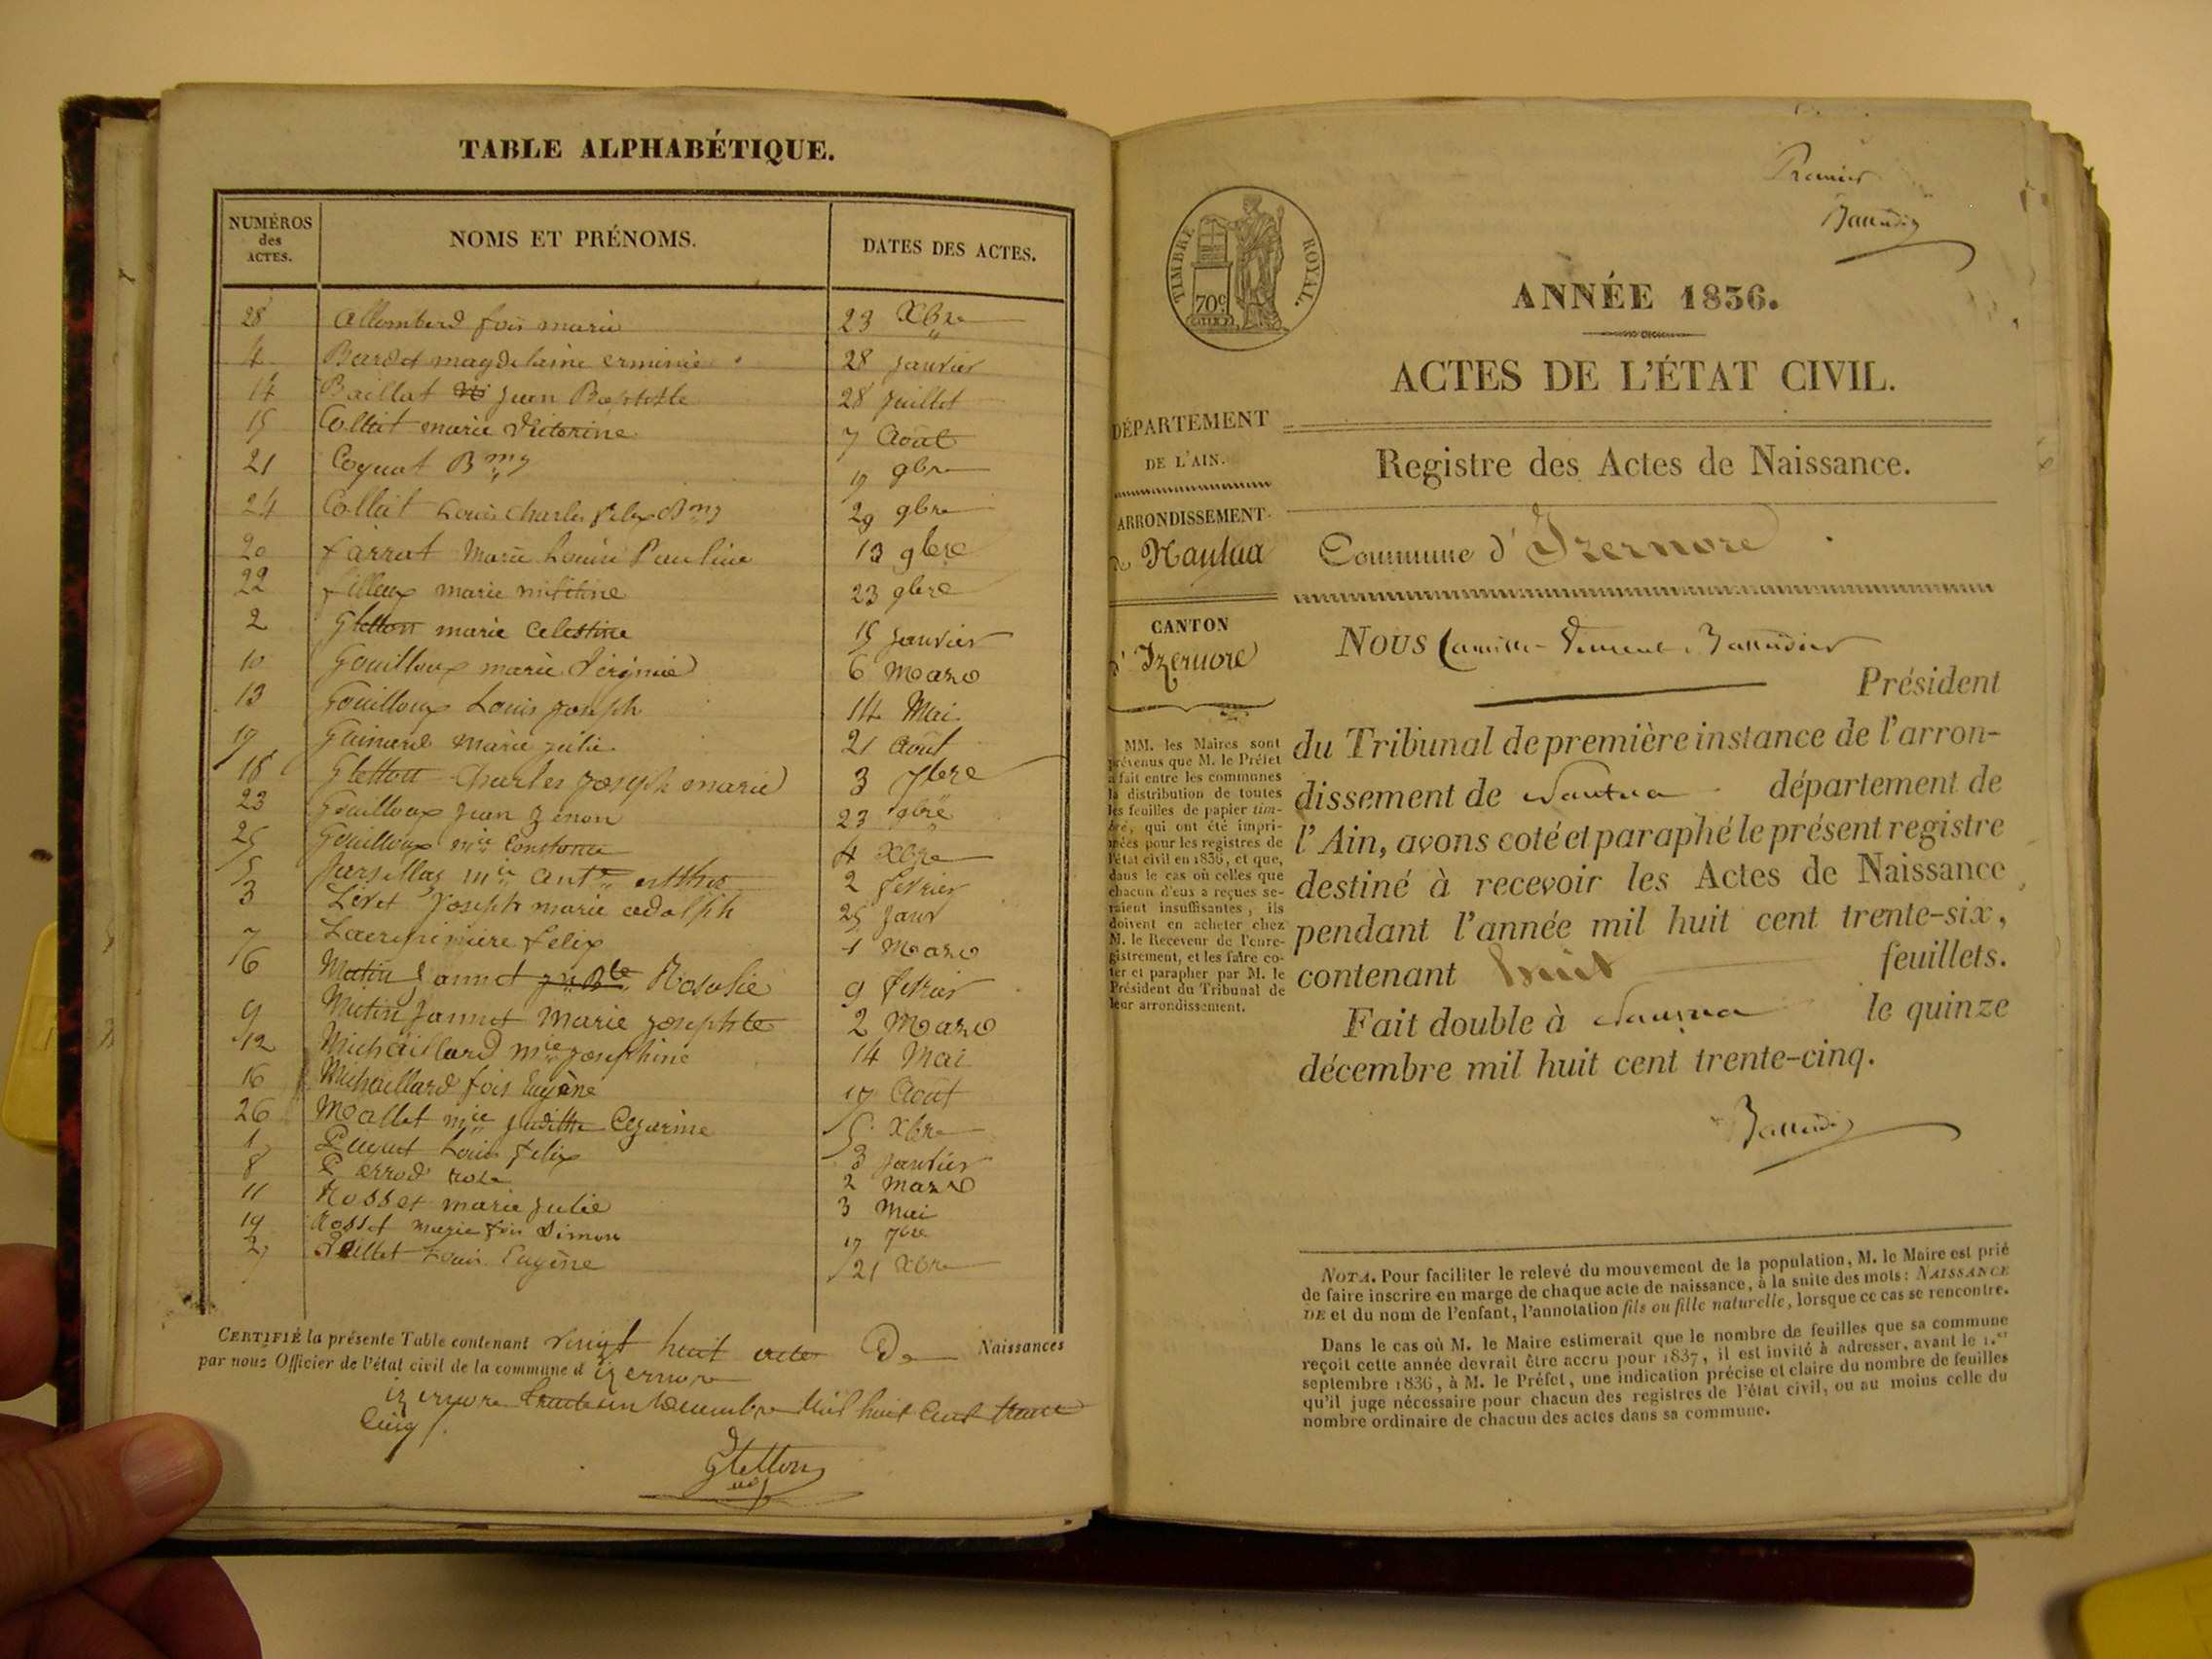 TABLE ALPHABÉTIQUE.
NUMÉROS des ACTES. NOMS ET PRÉNOMS. DATES DES ACTES.
28 Allombert fois marie 23 Xbre
4 Bardet magdelaine erminie 28 janvier
14 Baillat Jean Baptiste 28 juillet
15 Collat marie Victorine 7 Aout
21 Coquat Bmy 19 9bre
24 Collat Louis Charles felix Bmy 29 9bre
20 farrat Marie Louise Pauline 13 9bre
22 marie 23 9bre
2 Gletton marie Celestine 15 janvier
10 Gouilloux marie Virginie 6 Mars
13 Gouilloux Louis joseph 14 Mai
17 marie julie 21 Aout
18 Gletton Charles joseph marie 3 7bre
23 Gouilloux jean zenon 23 9bre
25 Gouilloux mie Constance 4 Xbre
5 mie antte esther 2 fevrier
3 Livet joseph marie adolph 25 janv
7 felix 1 Mars
6 Mutin jannet Rosalie 9 fevrier
9 Mutin Jannet Marie josephte 2 Mars
12 Michaillard mie josephine 14 Mai
16 Michaillard fois Eugène 17 Aout
26 Mallet mie judithe Cezarine 5 Xbre
1 Louis felix 3 janvier
8 Perrod rose 2 mars
11 Rosset marie julie 3 Mai
19 Rosset marie fois Simon 17 7bre
27 Louis Eugène 21 Xbre
CERTIFIÉ la présente Table contenant vingt huit actes De Naissances
par nous Officier de l'état civil de la commune d'izernore
izernore trente un decembre mil huit cent trente
cinq /.
Gletton
Premier
TIMBRE ROYAL.
70c
ANNÉE 1836.
ACTES DE L'ÉTAT CIVIL.
DÉPARTEMENT
DE L'AIN.
Registre des Actes de Naissance.
ARRONDISSEMENT
de Nantua
Commune d'Izernore
CANTON
d'Izernore
NOUS Camille
Président
du Tribunal de première instance de l'arron-
dissement de Nantua département de
l'Ain, avons coté et paraphé le présent registre
destiné à recevoir les Actes de Naissance
pendant l'année mil huit cent trente-six,
contenant huit feuillets.
Fait double à Nantua le quinze
décembre mil huit cent trente-cinq.
MM. les Maires sont
prévenus que M. le Préfet
a fait entre les communes
la distribution de toutes
les feuilles de papier tim-
bré, qui ont été impri-
mées pour les registres de
l'état civil en 1836, et que,
dans le cas où celles que
chacun d'eux a reçues se-
raient insuffisantes, ils
doivent en acheter chez
M. le Receveur de l'enre-
gistrement, et les faire co-
ter et parapher par M. le
Président du Tribunal de
leur arrondissement.
NOTA. Pour faciliter le relevé du mouvement de la population, M. le Maire est prié
de faire inscrire en marge de chaque acte de naissance, à la suite des mots: NAISSANCE
DE et du nom de l'enfant, l'annotation fils ou fille naturelle, lorsque ce cas se rencontre.
Dans le cas où M. le Maire estimerait que le nombre de feuilles que sa commune
reçoit cette année devrait être accru pour 1837, il est invité à adresser, avant le 1.er
septembre 1836, à M. le Préfet, une indication précise et claire du nombre de feuilles
qu'il juge nécessaire pour chacun des registres de l'état civil, ou au moins celle du
nombre ordinaire de chacun des actes dans sa commune.